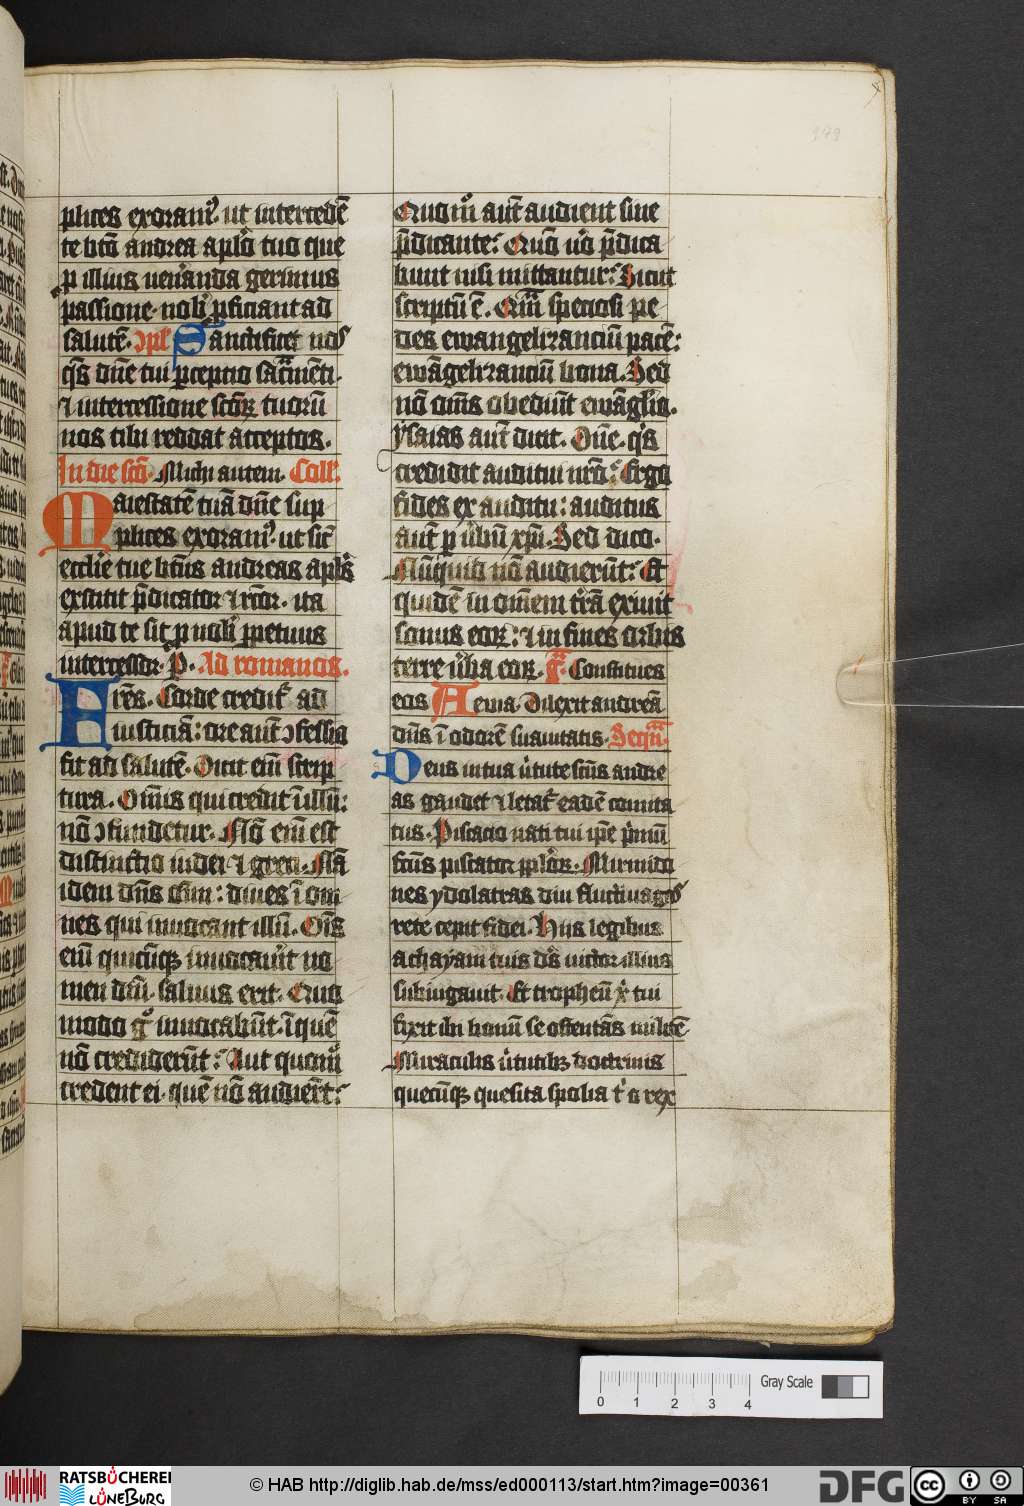 plices exoramꝰ ut intercedē
te bt̄o andrea aplo tuo que
ꝑ illius uenanda geminus
passione. nob̄ ꝓficiant ad
salutē. ↄpl̄ Sanctificet nos
q̄s dn̄e tui ꝑceptio sac̄menti.
⁊ intercessione sc̄oꝝ tuoꝝ
nos tibi reddat acceptos.
In die sc̄o. Michi autem. Coll̄.
Maiestatē tuā dn̄e sup
plices exoramꝰ. ut sic̄
eccl̄ie tue bt̄us andreas apl̄s
exstitit p̄dicator ⁊ r̄c̄or. ita
apud te sit ꝓ nob̄ ꝑpetuus
intercessor. P. Ad romanos.
Fr̄es. Corde credit̄ ad
iusticiā: ore aut̄ ↄfessio
fit ad salutē. Dicit em̄ scrip
tura. Om̄is qui credit ī illū:
nō ↄfundetur. Nō em̄ est
distinctio iudei ⁊ greci. Nā
idem dn̄s oīm: diues ī om
nes qui inuocant illū. Om̄s
em̄ quicūqꝫ inuocauit no
men dn̄i. saluus erit. Quo
modo gͦ inuocabūt. ī quē
nō crediderūt: Aut quomͦ
credent ei. quē nō audierūt:
Quomͦ aut̄ audient sine
p̄dicante: Quō uͦ p̄dica
bunt nisi mittantur: Sicut
scriptū ē. Qm̄ speciosi pe
des ewangelizanciū pacē:
ewāgelizanciū bona. Sed
nō om̄s obediūt ewāglio.
ysaias aut̄ dicit. Dn̄e. qͥs
credidit auditui nr̄o: Ergo
fides ex auditu: auditus
aut̄ ꝑ ūbū xp̄i. Sed dico.
Nūquid nō audierūt: Et
quidē in om̄em t̄rā exiuit
sonus eoꝝ: ⁊ in fines orbis
terre ūba eoꝝ. Gͣ. Constitues
eos Aeuia. Dilexit andreā
dn̄s ī odorē suauitatis. Seqn̄.
Deus in tua ūtute sc̄us andre
as gaudet ⁊ letat̄ eadē comita
tus. Piscacio nati tui ip̄e p̄mū
fc̄us piscator pploꝝ. Mirmido
nes ydolatras diu fluctiuagos
rete cepit fidei. Hiis legibus
achayam tuis dūs uictor illius
subiugauit. Et tropheū xͥ tui
fixit ibi bonū se ostentās militē
Miraculis ūtutibꝫ doctrinis
quecūqꝫ quesita spolia tͥ o rex
179
Gray Scale
0 1 2 3 4
RATSBÜCHEREI
LÜNEBURG
© HAB http://diglib.hab.de/mss/ed000113/start.htm?image=00361
DFG
cc BY SA